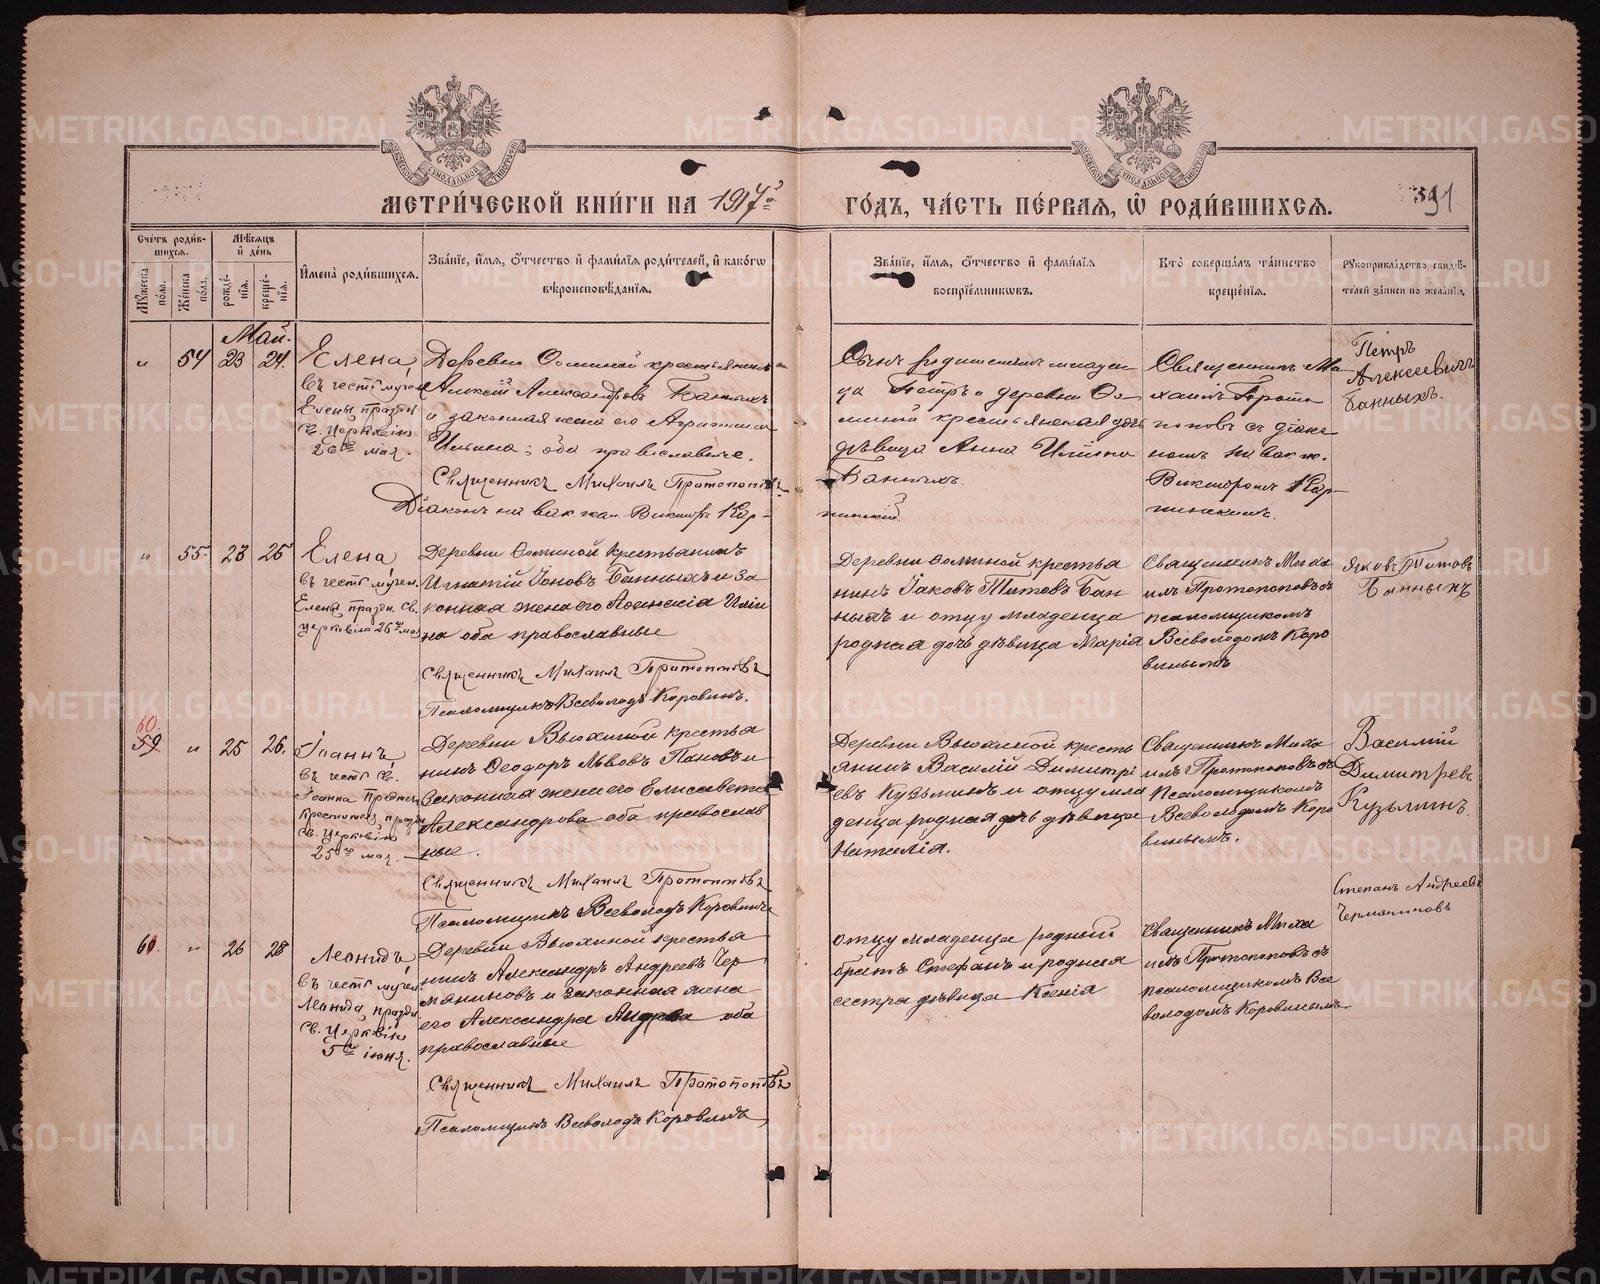 МЕТРИ́ЧЕСКОЙ КНИ́ГИ НА 1917й
ГО́ДЪ, ЧА́СТЬ ПЕ́РВАЯ, Ѡ РОДИ́ВШИХСЯ.
391
Сче́тъ роди́в-
шихся.
Мѣ́сяцъ
и҆ де́нь
Мꙋ́жеска по́ла.
Же́нска по́ла.
рожде́-
нїя.
креще́-
нїя.
И҆мена̀ роди́вшихся.
Зва́нїе, и҆́мя, ѻ҆́тчество и҆ фами́лїя роди́телей, и҆ како́гѡ
вѣроисповѣ́данїя.
Зва́нїе, и҆́мя, ѻ҆́тчество и҆ фами́лїя
воспрїе́мниковъ.
Кто̀ соверша́лъ та́инство
креще́нїя.
Рꙋкоприкла́дство свидѣ́-
телей за́писи по жела́нїю.
Май.
" 54 23 24.
Елена,
въ честь мучен.
Елены праздн.
Св. Церковію
26го мая.
Деревни Ѳоминой крестьянинъ
Алексій Александровъ Банныхъ
и законная жена его Агриппина
Ильина; оба православные.
Священникъ Михаилъ Протопоповъ
Діаконъ на вак. пса. Викторъ Кар-
пинскій.
Сынъ родителей младен
ца Петръ и деревни Ѳо-
миной крестьянская дочь
дѣвица Анна Илiина
Банныхъ.
Священникъ Ми-
хаилъ Прото
поповъ съ діако
номъ на вак. пс.
Викторомъ Кар-
пинскимъ.
Петръ
Алексеевичъ
Банныхъ.
" 55. 23 25
Елена,
въ честь мучен.
Елены праздн. Св.
Церковію 26го мая
Деревни Ѳоминой крестьянинъ
Игнатій Іоновъ Банныхъ и за
конная жена его Аѳанасія Иліи
на оба православные
Священникъ Михаилъ Протопоповъ
Псаломщикъ Всеволодъ Коровинъ.
Деревни Ѳоминой крестья
нинъ Іаковъ Титовъ Бан
ныхъ и отцу младенца
родная дочь дѣвица Марія
Священникъ Миха
илъ Протопоповъ съ
псаломщикомъ
Всеволодомъ Коро
винымъ
Яковъ Титовъ
Банныхъ
60.
59 " 25 26.
Іоаннъ,
въ честь Св.
Іоанна Предтечи
Крестителя, праздн
Св. Церковію
25го мая.
Деревни Вьюхиной крестья
нинъ Ѳеодоръ Львовъ Пановъ и
законная жена его Елисавета
Александрова оба православ
ные.
Священникъ Михаилъ Протопоповъ
Псаломщикъ Всеволодъ Коровинъ
Деревни Вьюхиной кресть
янинъ Василій Димитрі
евъ Кузьминъ и отцу мла
денца родная дочь дѣвица
Наталія.
Священникъ Миха
илъ Протопоповъ съ
Псаломщикомъ
Всеволодомъ Коро
винымъ.
Василий
Димитрев
Кузьминъ
61. " 26 28
Леонидъ
въ честь мучен.
Леонида, праздн.
Св. Церковію
5го іюня.
Деревни Вьюхиной крестья
нинъ Александръ Андреевъ Чер
мяниновъ и законная жена
его Александра Андреева оба
православные
Священникъ Михаилъ Протопоповъ
Псаломщикъ Всеволодъ Коровинъ
отцу младенца родный
братъ Стефанъ и родная
сестра дѣвица Ксенія
Священникъ Миха
илъ Протопоповъ съ
псаломщикомъ Все
володомъ Коровинымъ
Степанъ Андреевъ
Чермяниновъ
METRIKI.GASO-URAL.RU